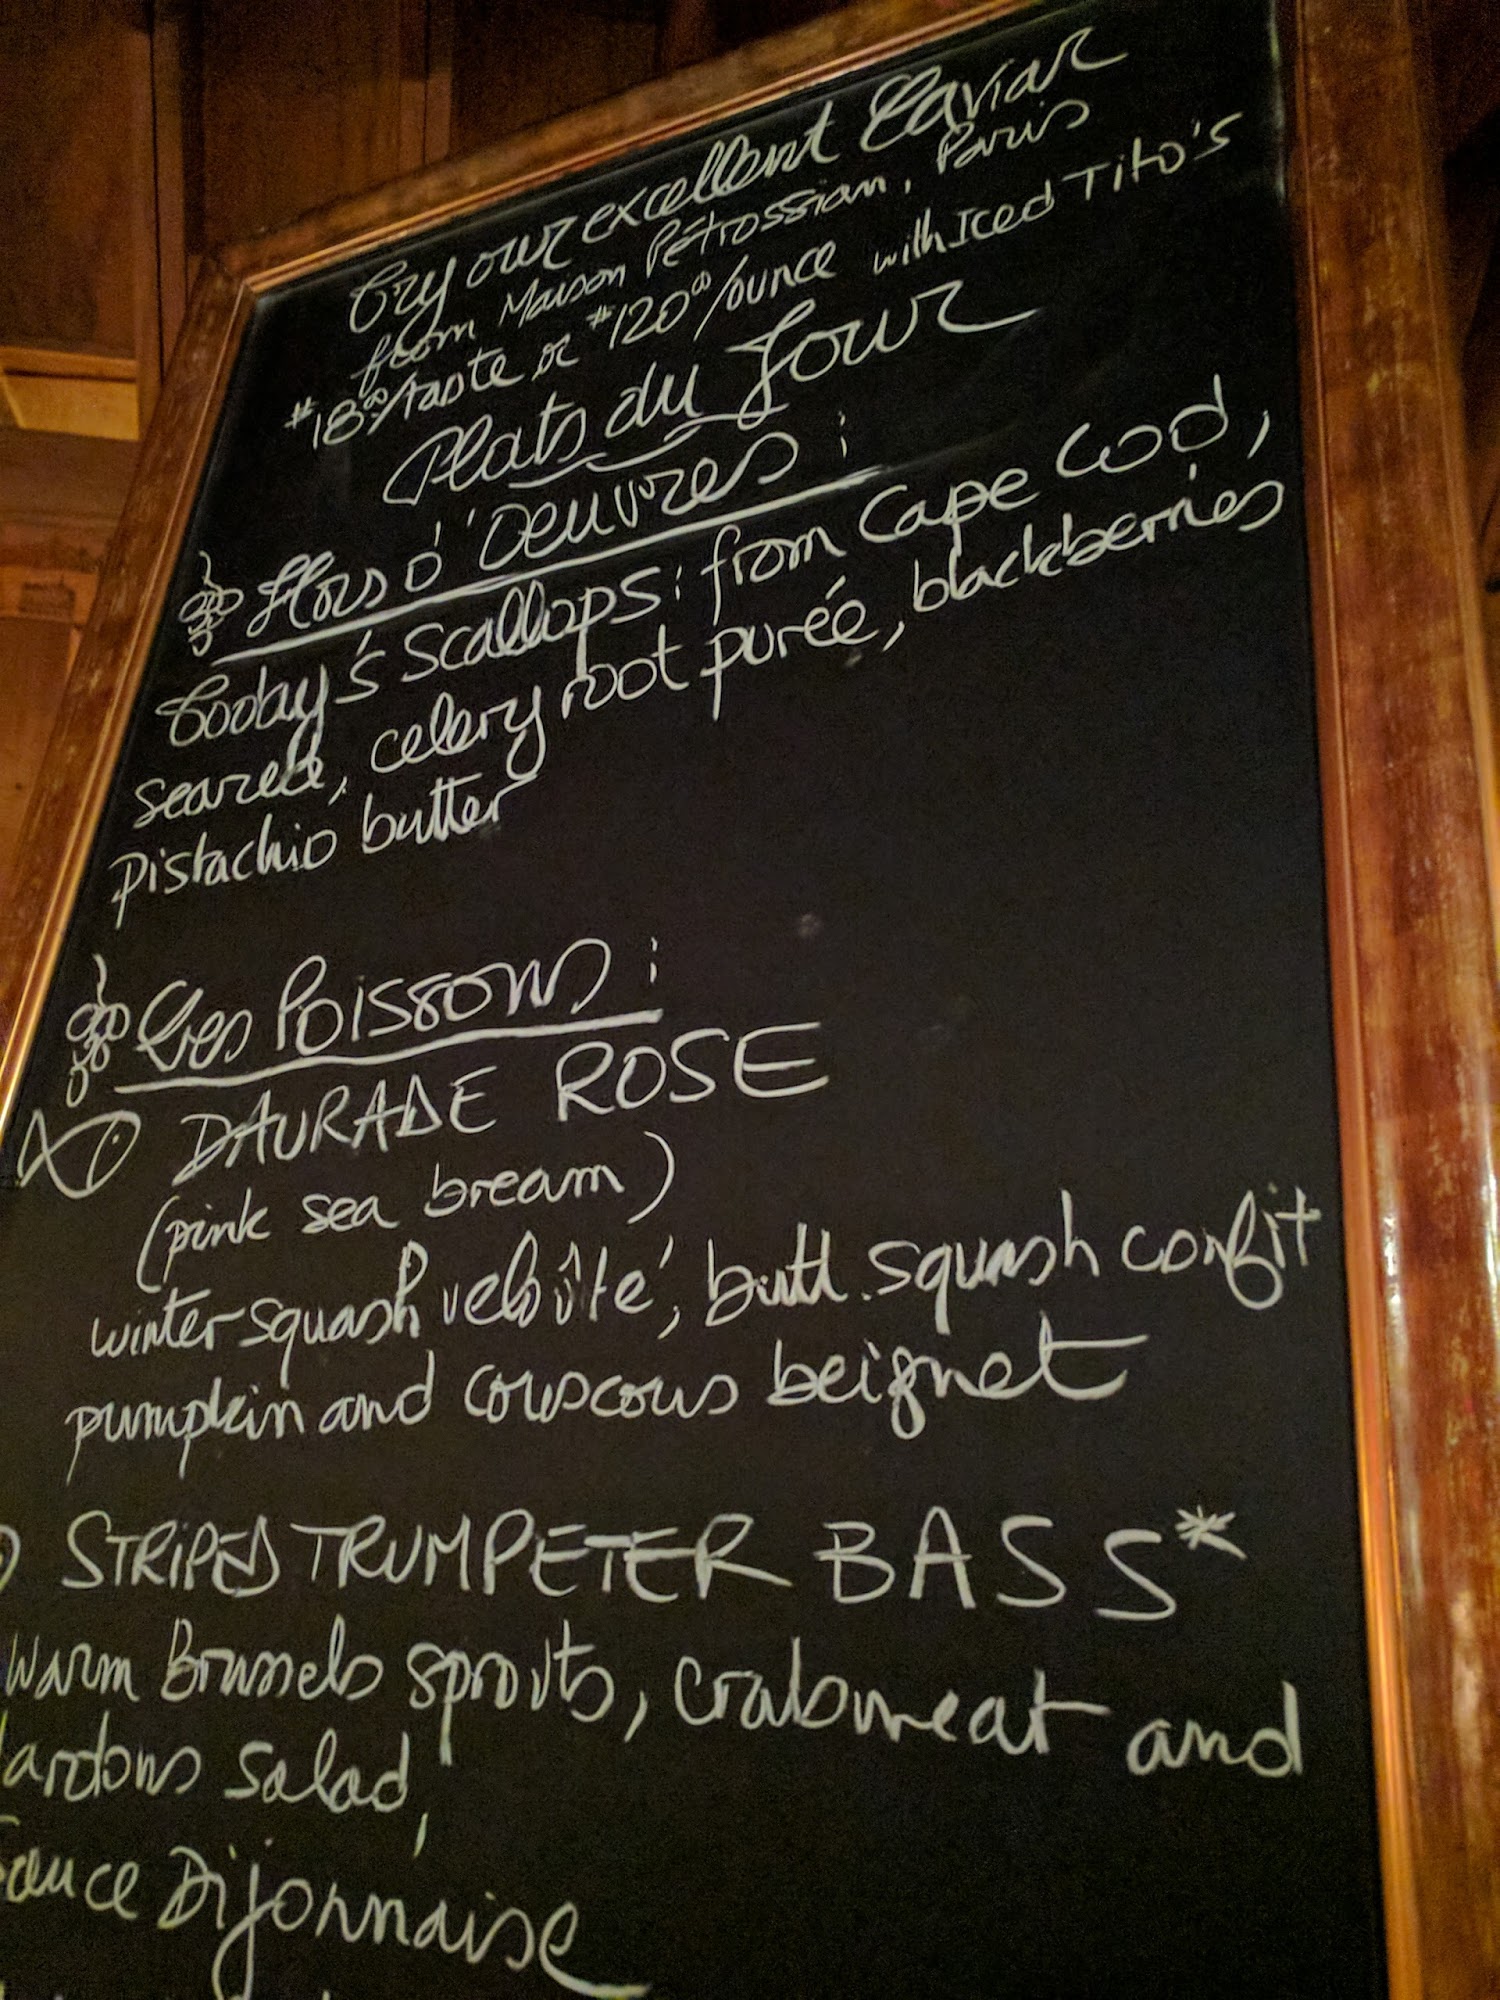 Try our excellent Caviar
from Maison Pétrossian, Paris
#18⁰⁰/taste or #120⁰⁰/ounce with Iced Tito's
Plats du Jour
Hors d'oeuvres:
Today's Scallops: from Cape Cod,
seared, celery root purée, blackberries
pistachio butter
Les Poissons:
DAURADE ROSE
(pink sea bream)
winter squash velôuté, butt. squash confit
pumpkin and couscous beignet
STRIPED TRUMPETER BASS*
Warm Brussels sprouts, crabmeat and
lardons salad,
Sauce Dijonnaise